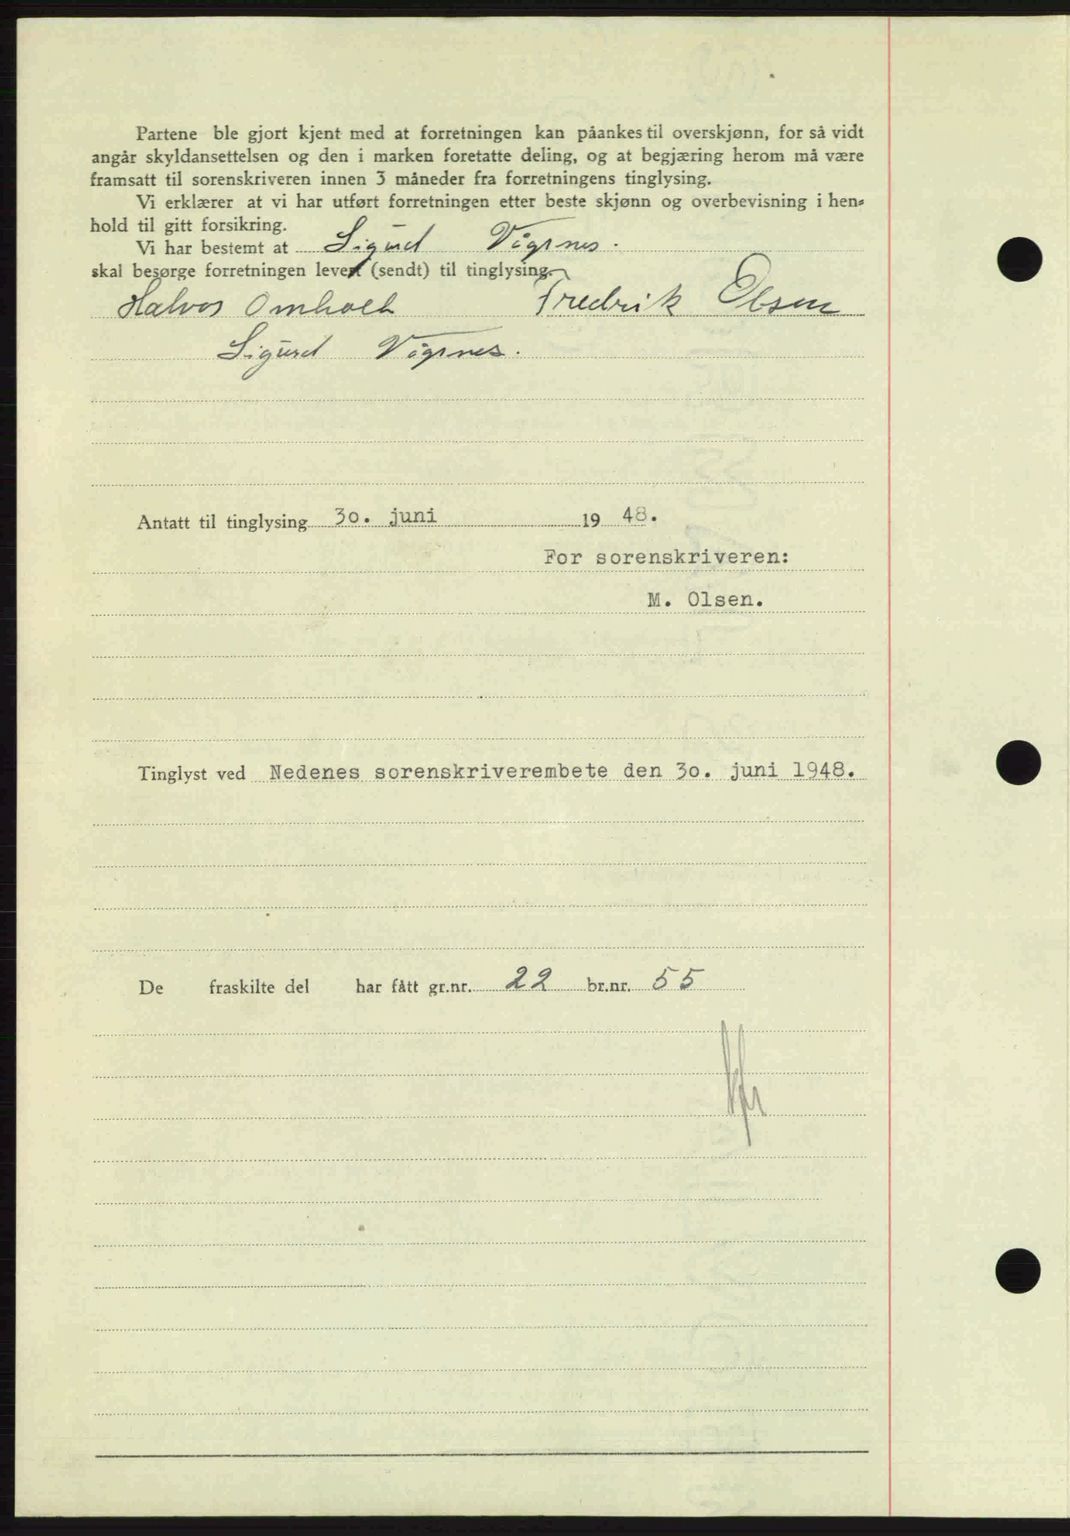 Partene ble gjort kjent med at forretningen kan påankes til overskjønn, for så vidt
angår skyldansettelsen og den i marken foretatte deling, og at begjæring herom må være
framsatt til sorenskriveren innen 3 måneder fra forretningens tinglysing.
Vi erklærer at vi har utført forretningen etter beste skjønn og overbevisning i hen-
hold til gitt forsikring.
Vi har bestemt at Sigurd Vågsnes.
skal besørge forretningen levert (sendt) til tinglysing.
Halvor Omholt Fredrik Olsen
Sigurd Vågsnes.
Antatt til tinglysing 30. juni 19 48.
For sorenskriveren:
M. Olsen.
Tinglyst ved Nedenes sorenskriverembete den 30. juni 1948.
De fraskilte del har fått gr.nr. 22 br.nr. 55